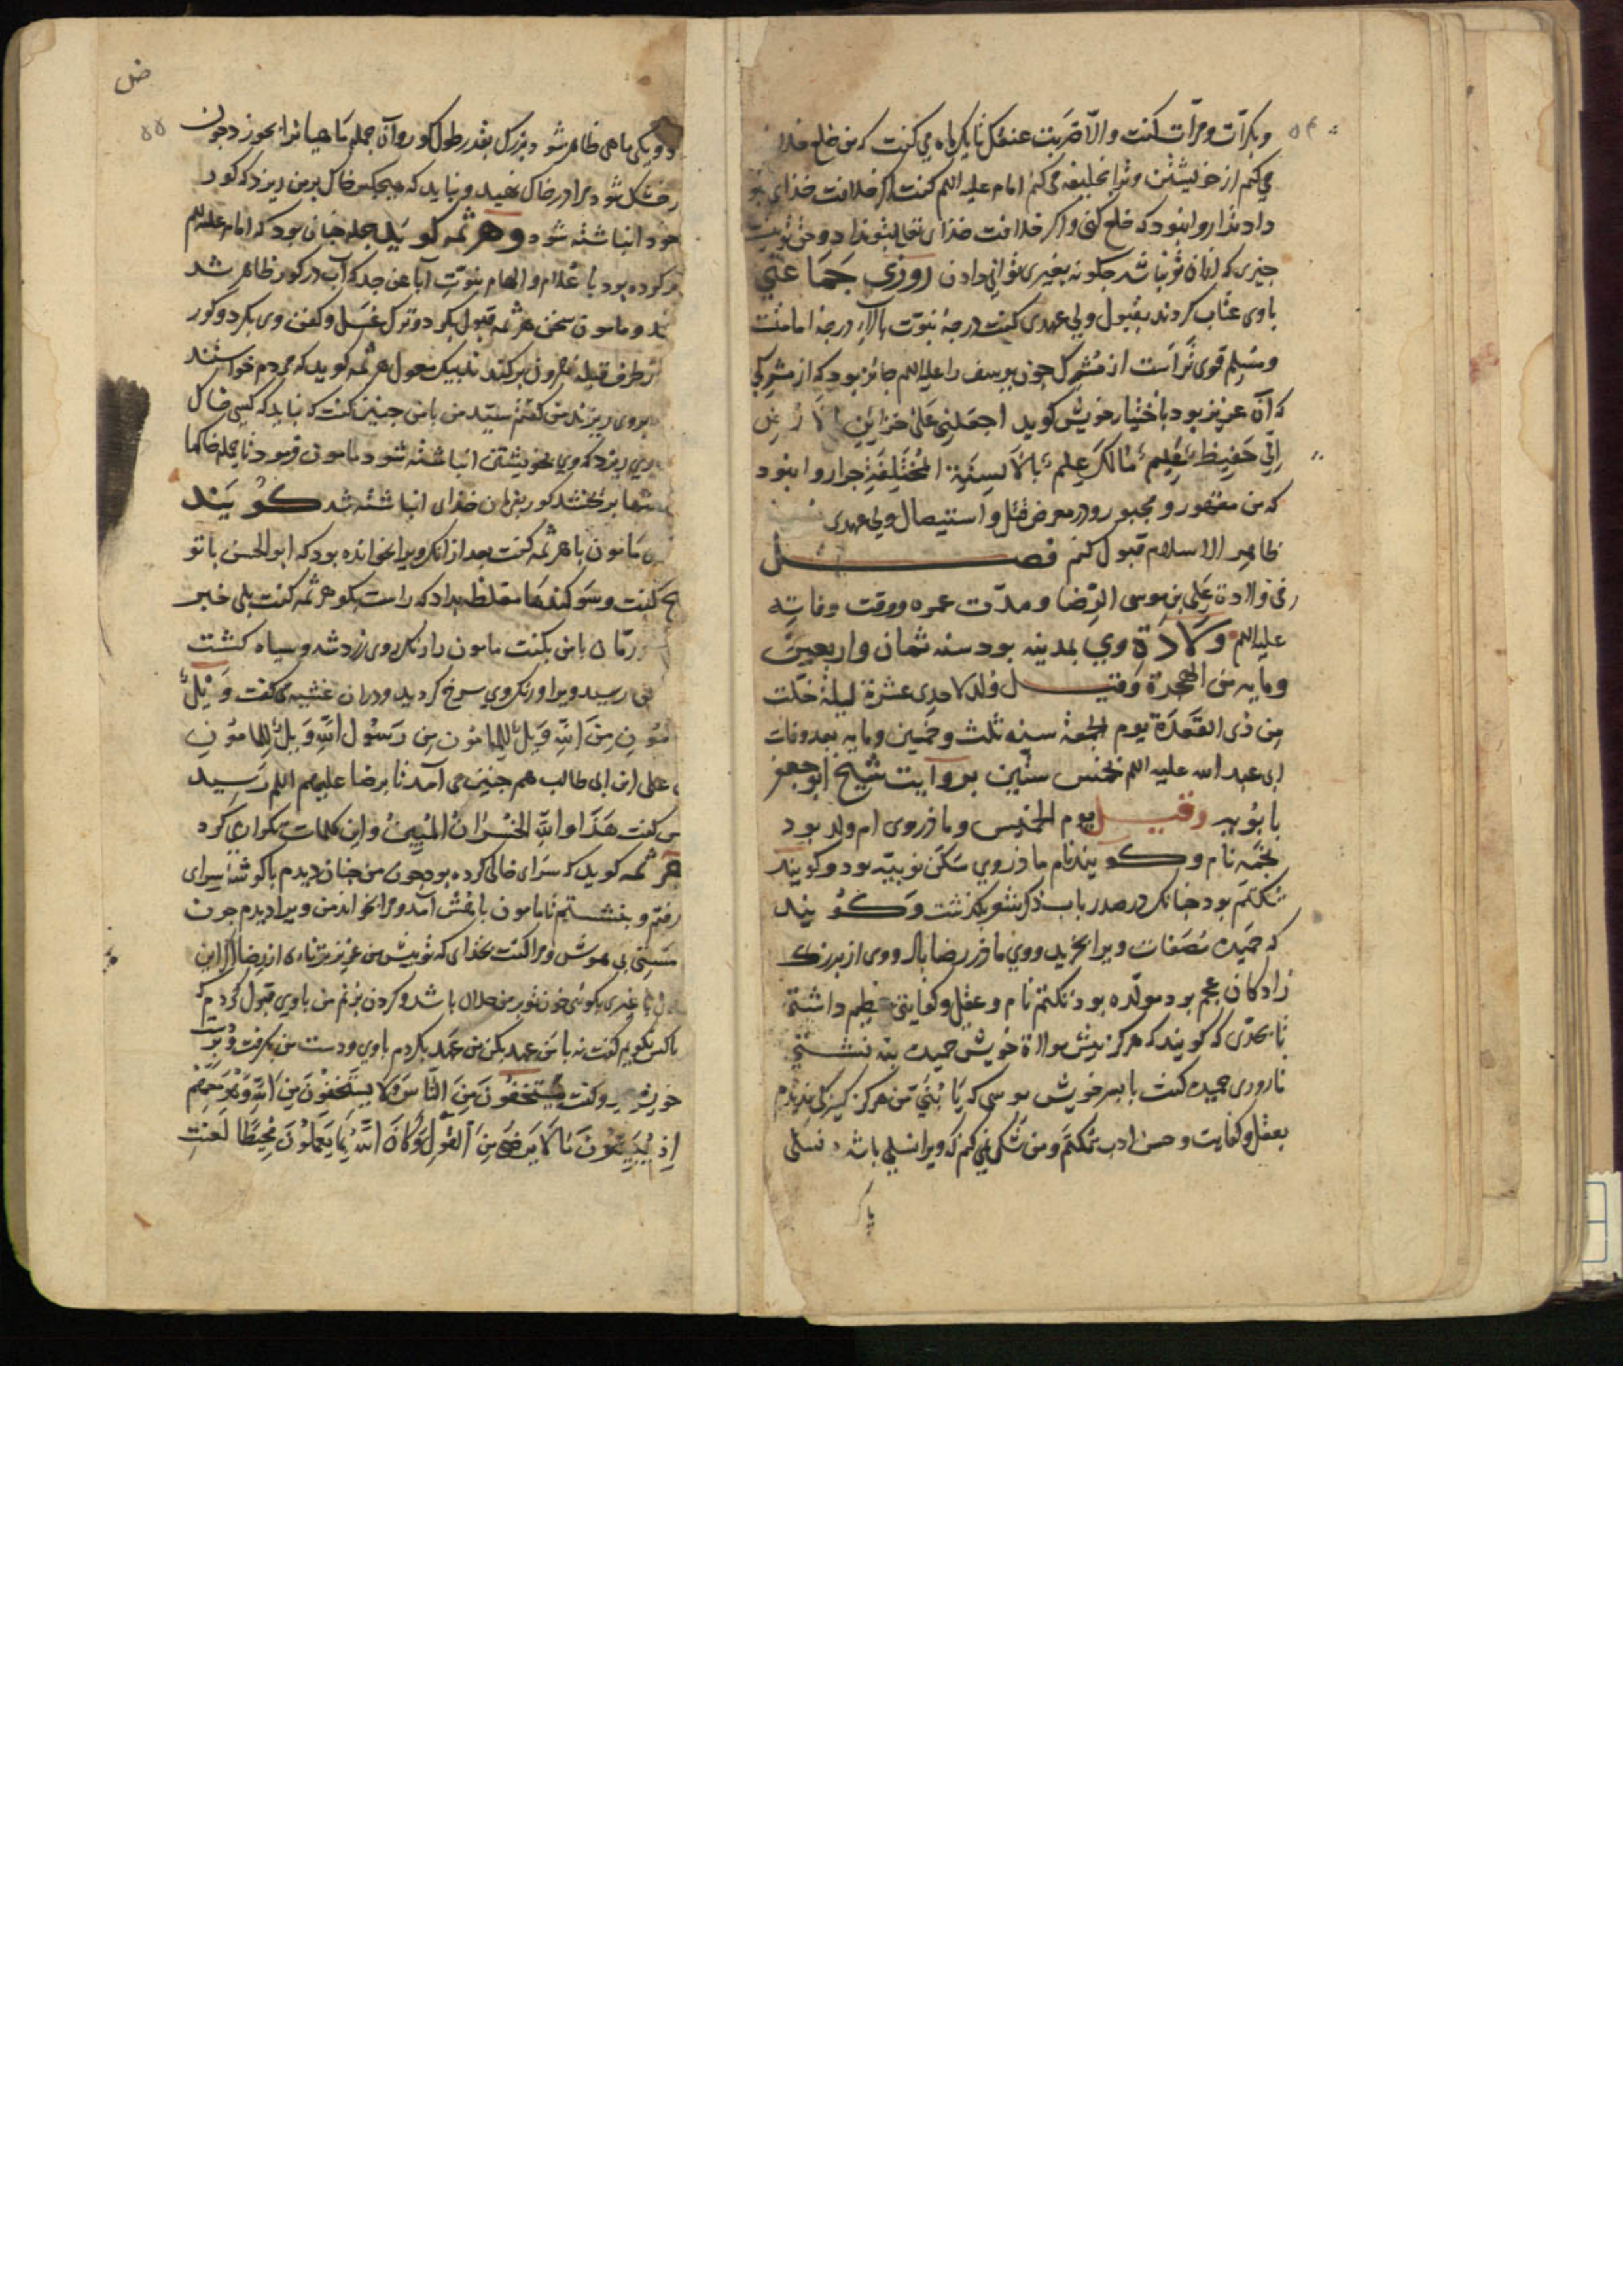 وبکرّات ومرّات کفت والّا ضربت عنقک تا یکباره می کفت که من خلع خلا
می کنم از خویشتن وترا بخلیفه می کنم امام علیه السلم کفت اکر خلافت خدای بتو
داد ترا روا نبود که خلع کنی واکر خلافت خدای تعالی بتو نداد وحق تو نیست
جیزی که از ان تو نباشد جکونه بغیری توانی دادن روزی جماعتی
باوی عتاب کردند بقبول ولی عهدی کفت درجهٔ نبوّت بالای درجهٔ امامتست
ومسلم قوی تراست از مشرک جون یوسف را علیه السلم جائز بود که از مشرکی
که آن عزیز بود باختیار خویش کوید اجعلنی علی خزاین الارض
انّی حفیظ علیم بالالسنة المختلفة جرا روا نبود
که من مقهور ومجبور ودر معرض قتل واستیصال ولی عهدی
ظاهر الاسلام قبول کنم فصل
فی ولادة علی بن موسی الرّضا ومدّت عمره ووقت وفاته
علیه السلم ولادة وی بمدینه بود سنه ثمان واربعین
ومایه من الهجرة وقیل ولد لاحدی عشرة لیلة خلت
من ذی القعدة یوم الجمعة سنه ثلث وخمسین ومایه بعد وفات
ابی عبد الله علیه السلم بخمس سنین بروایت شیخ ابو جعفر
بابویه وقیل یوم الخمیس وماذر وی ام ولد بود
نجمه نام وکویند نام ماذر وی سکن نوبیّه بود وکویند
تکتم بود جنانک در صدر باب ذکر شو بکذشت وکویند
که حمیده مصفات ویرا بخرید ووی ماذر رضا باد ووی از بزرک
زادکان عجم بود مولّده بود تکتم نام وعقل وکفایتی عظیم داشتی
تا بحدّی که کویند که هرکز پیش مولاة خویش حمیده بنه نشستی
تا روزی حمیده کفت با پسر خویش موسی که یا بنیّ من هرکز کنیزکی ندیدم
بعقل وکفایت وحسن ادب تکتم ومن شک نمی کنم که ویرا نسلی باشد نسلی
پاک
ض
دو یکی ماهی ظاهر شود بزرک بقدر طول کور وآن جمله ماهیانرا بخورد جون
خشک شود مرا در خاک نهید ونباید که هیجکس خاک بر من ریزد که کور
خود انباشته شود وهرثمه کوید جمله جنان بود که امام علیه السلم
کرده بود باعلام والهام نبوّت آبا عن جد که آب در کور ظاهر شد
ومامون سخن هرثمه قبول بکرد وترک غسل وکفن وی بکرد وکور
طرف قبلهٔ هرون بر کندند بیک معول هرثمه کوید که مردم خواستند
بروی ریزند من کفتم سیّد من با من جنین کفت که نباید که کسی خاک
ریزد که وی بخویشتن انباشته شود مامون فرمود تا جمله خاکها
کور بفرمان خدای انباشته شد کویند
مامون با هرثمه کفت بعد از انک ویرا بخوانده بود که ابو الحسن با تو
کفت وسوکندها مغلظه بداد که راست بکو هرثمه کفت بلی خبر
ورمّان با من بکفت مامون را رنک روی زرد شد وسیاه کشت
رسید ویرا ورنک روی سرخ کردید ودران غشیه می کفت ویل
من الله ویل للمامون من رسول الله ویل للمامون
علی ابن ابی طالب هم جنین می آمد تا برضا علیهم السلم رسید
کفت هذا والله الخسران المبین واین کلمات تکرار می کرد
هرثمه کوید که سرای خالی کرده بود جون من جنان دیدم با کوشهٔ سرای
رفتم وبنشستم تا مامون باهش آمد ومرا بخواند من ویرا دیدم جون
مستی بی هوش ومرا کفت بخدای که تو پیش من عزیزتر نهٔ از رضا اکر این
با غیری بکوئی خون تو بر من حلال باشد وکردن بزنم من با وی قبول کردم که
باکس نکویم کفت نه با من عهد بکن من عهد بکردم با وی ودست من بکرفت
وکفت یستخفون من النّاس ولا یستخفون من الله وهو معهم
اذ یبیّتون ما لا یرضی من القول وکان الله بما یعملون محیطا لعنت